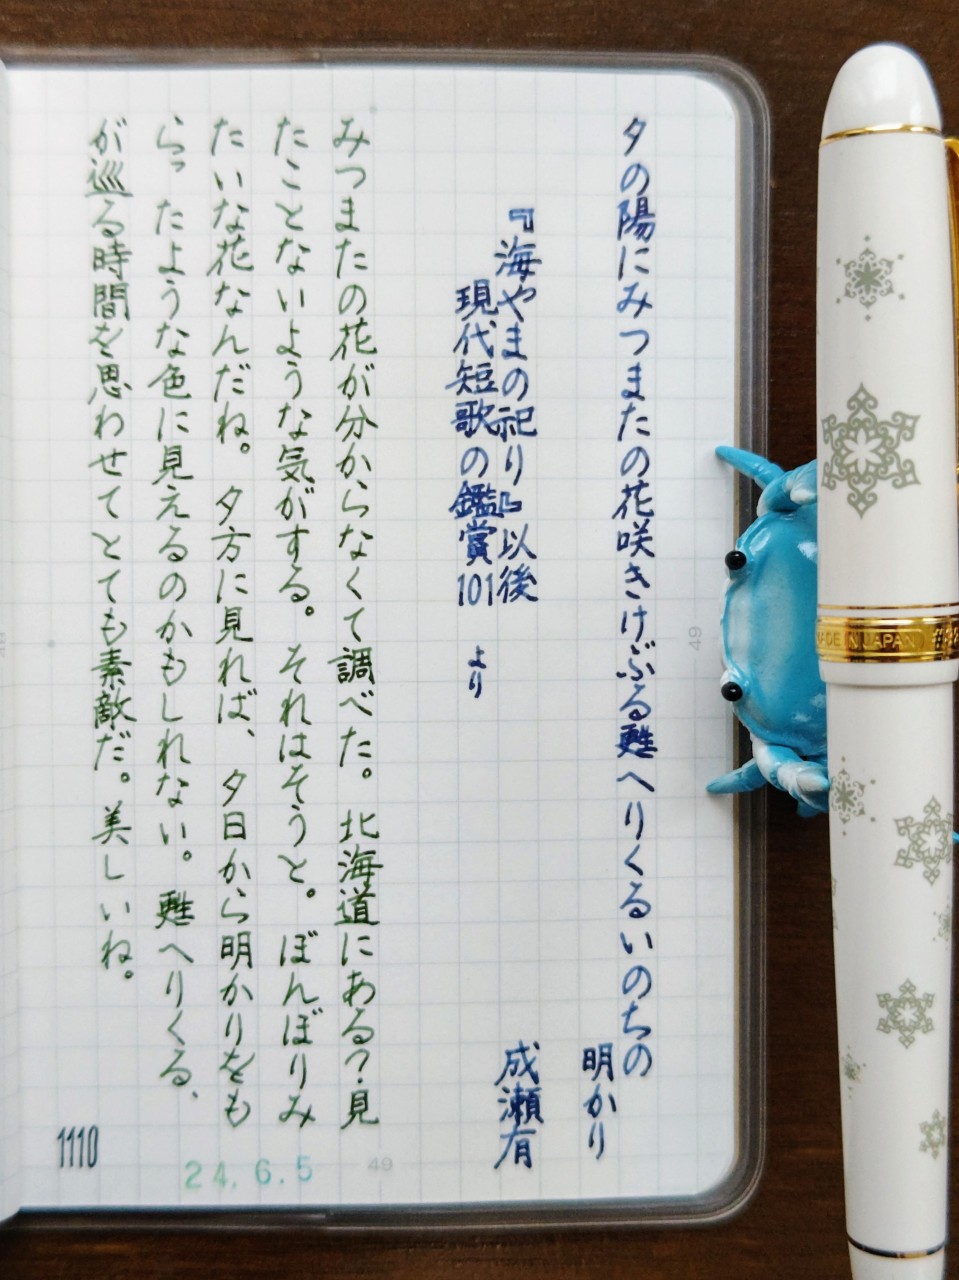 夕の陽にみつまたの花咲きけぶる甦へりくるいのちの
明かり
成瀬有
『海やまの祀り』以後
現代短歌の鑑賞101 より
みつまたの花が分からなくて調べた。北海道にある?見
たことないような気がする。それはそうと。ぼんぼりみ
たいな花なんだね。夕方に見れば、夕日から明かりをも
らったような色に見えるのかもしれない。甦へりくる、
が巡る時間を思わせてとても素敵だ。美しいね。
1110
24.6.5
49
49
MADE IN JAPAN